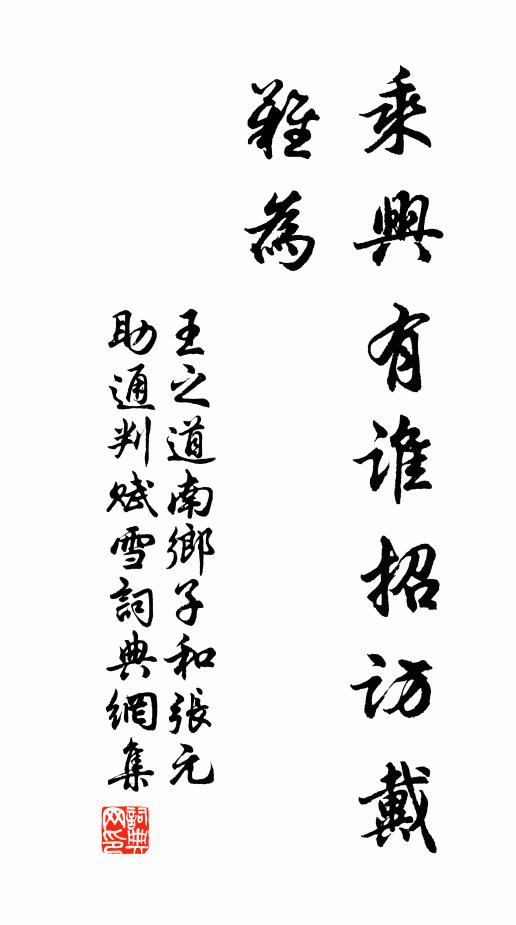 乘興有誰招訪戴
難為
王之道南鄉子和張元
助通判賦雪詞典網集
詞典
网印